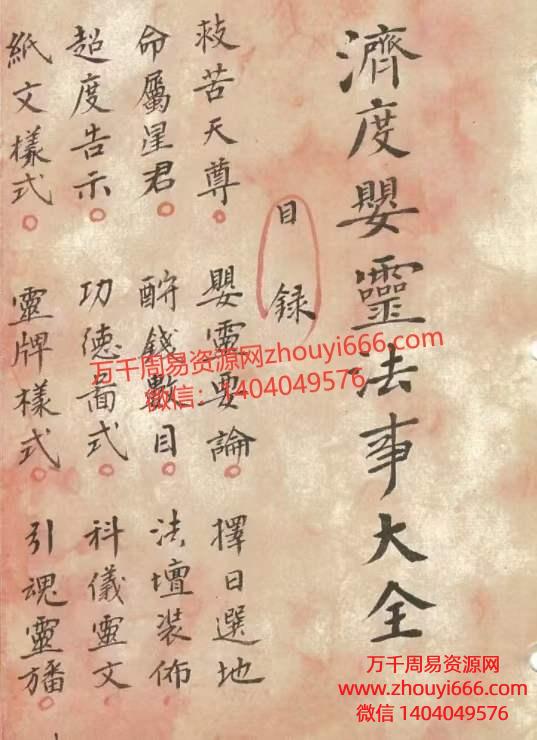 濟度嬰靈法事大全
目錄
救苦天尊 嬰靈要論 擇日選地
命屬星君 酧錢數目 法壇裝佈
超度告示 功德面式 科儀靈文
紙文樣式 靈牌樣式 引魂靈旛
万千周易资源网zhouyi666.com
微信：1404049576
万千周易资源网
www.zhouyi666.com
微信 1404049576